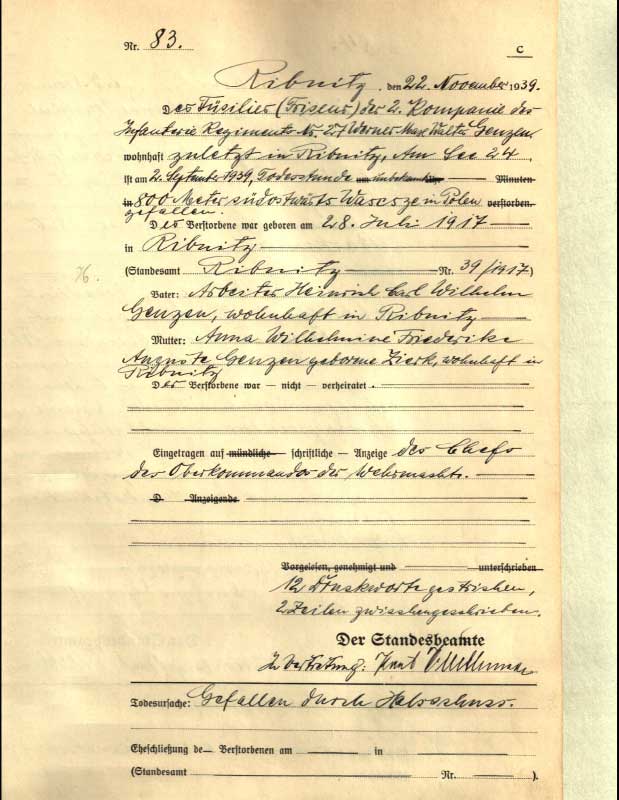 Nr. 83. C
Ribnitz, den 22. November 1939.
Der Füsilier (Friseur) der 2. Kompanie des
Infanterie Regiments Nr. 27 Werner Max Walter Genzen,
wohnhaft zuletzt in Ribnitz, Am See 24
ist am 2. September 1939, Todesstunde um unbekannt Minuten
in 800 Meter südostwärts in Polen verstorben.
gefallen.
Der Verstorbene war geboren am 28. Juli 1917
in Ribnitz
(Standesamt Ribnitz Nr. 39/1917)
Vater: Arbeiter Heinrich Carl Wilhelm
Genzen, wohnhaft in Ribnitz
Mutter: Anna Wilhelmine Friederike
Auguste Genzen geborene Zierk, wohnhaft in
Ribnitz
Der Verstorbene war — nicht — verheiratet.
Eingetragen auf mündliche — schriftliche — Anzeige des Chefs
des Oberkommandos der Wehrmacht.
D Anzeigende
Vorgelesen, genehmigt und unterschrieben
12 Druckworte gestrichen,
2 Zeilen zwischengeschrieben.
Der Standesbeamte
In Vertretung:
Todesursache: Gefallen durch Halsschuss.
Eheschließung de Verstorbenen am in
(Standesamt Nr. ).